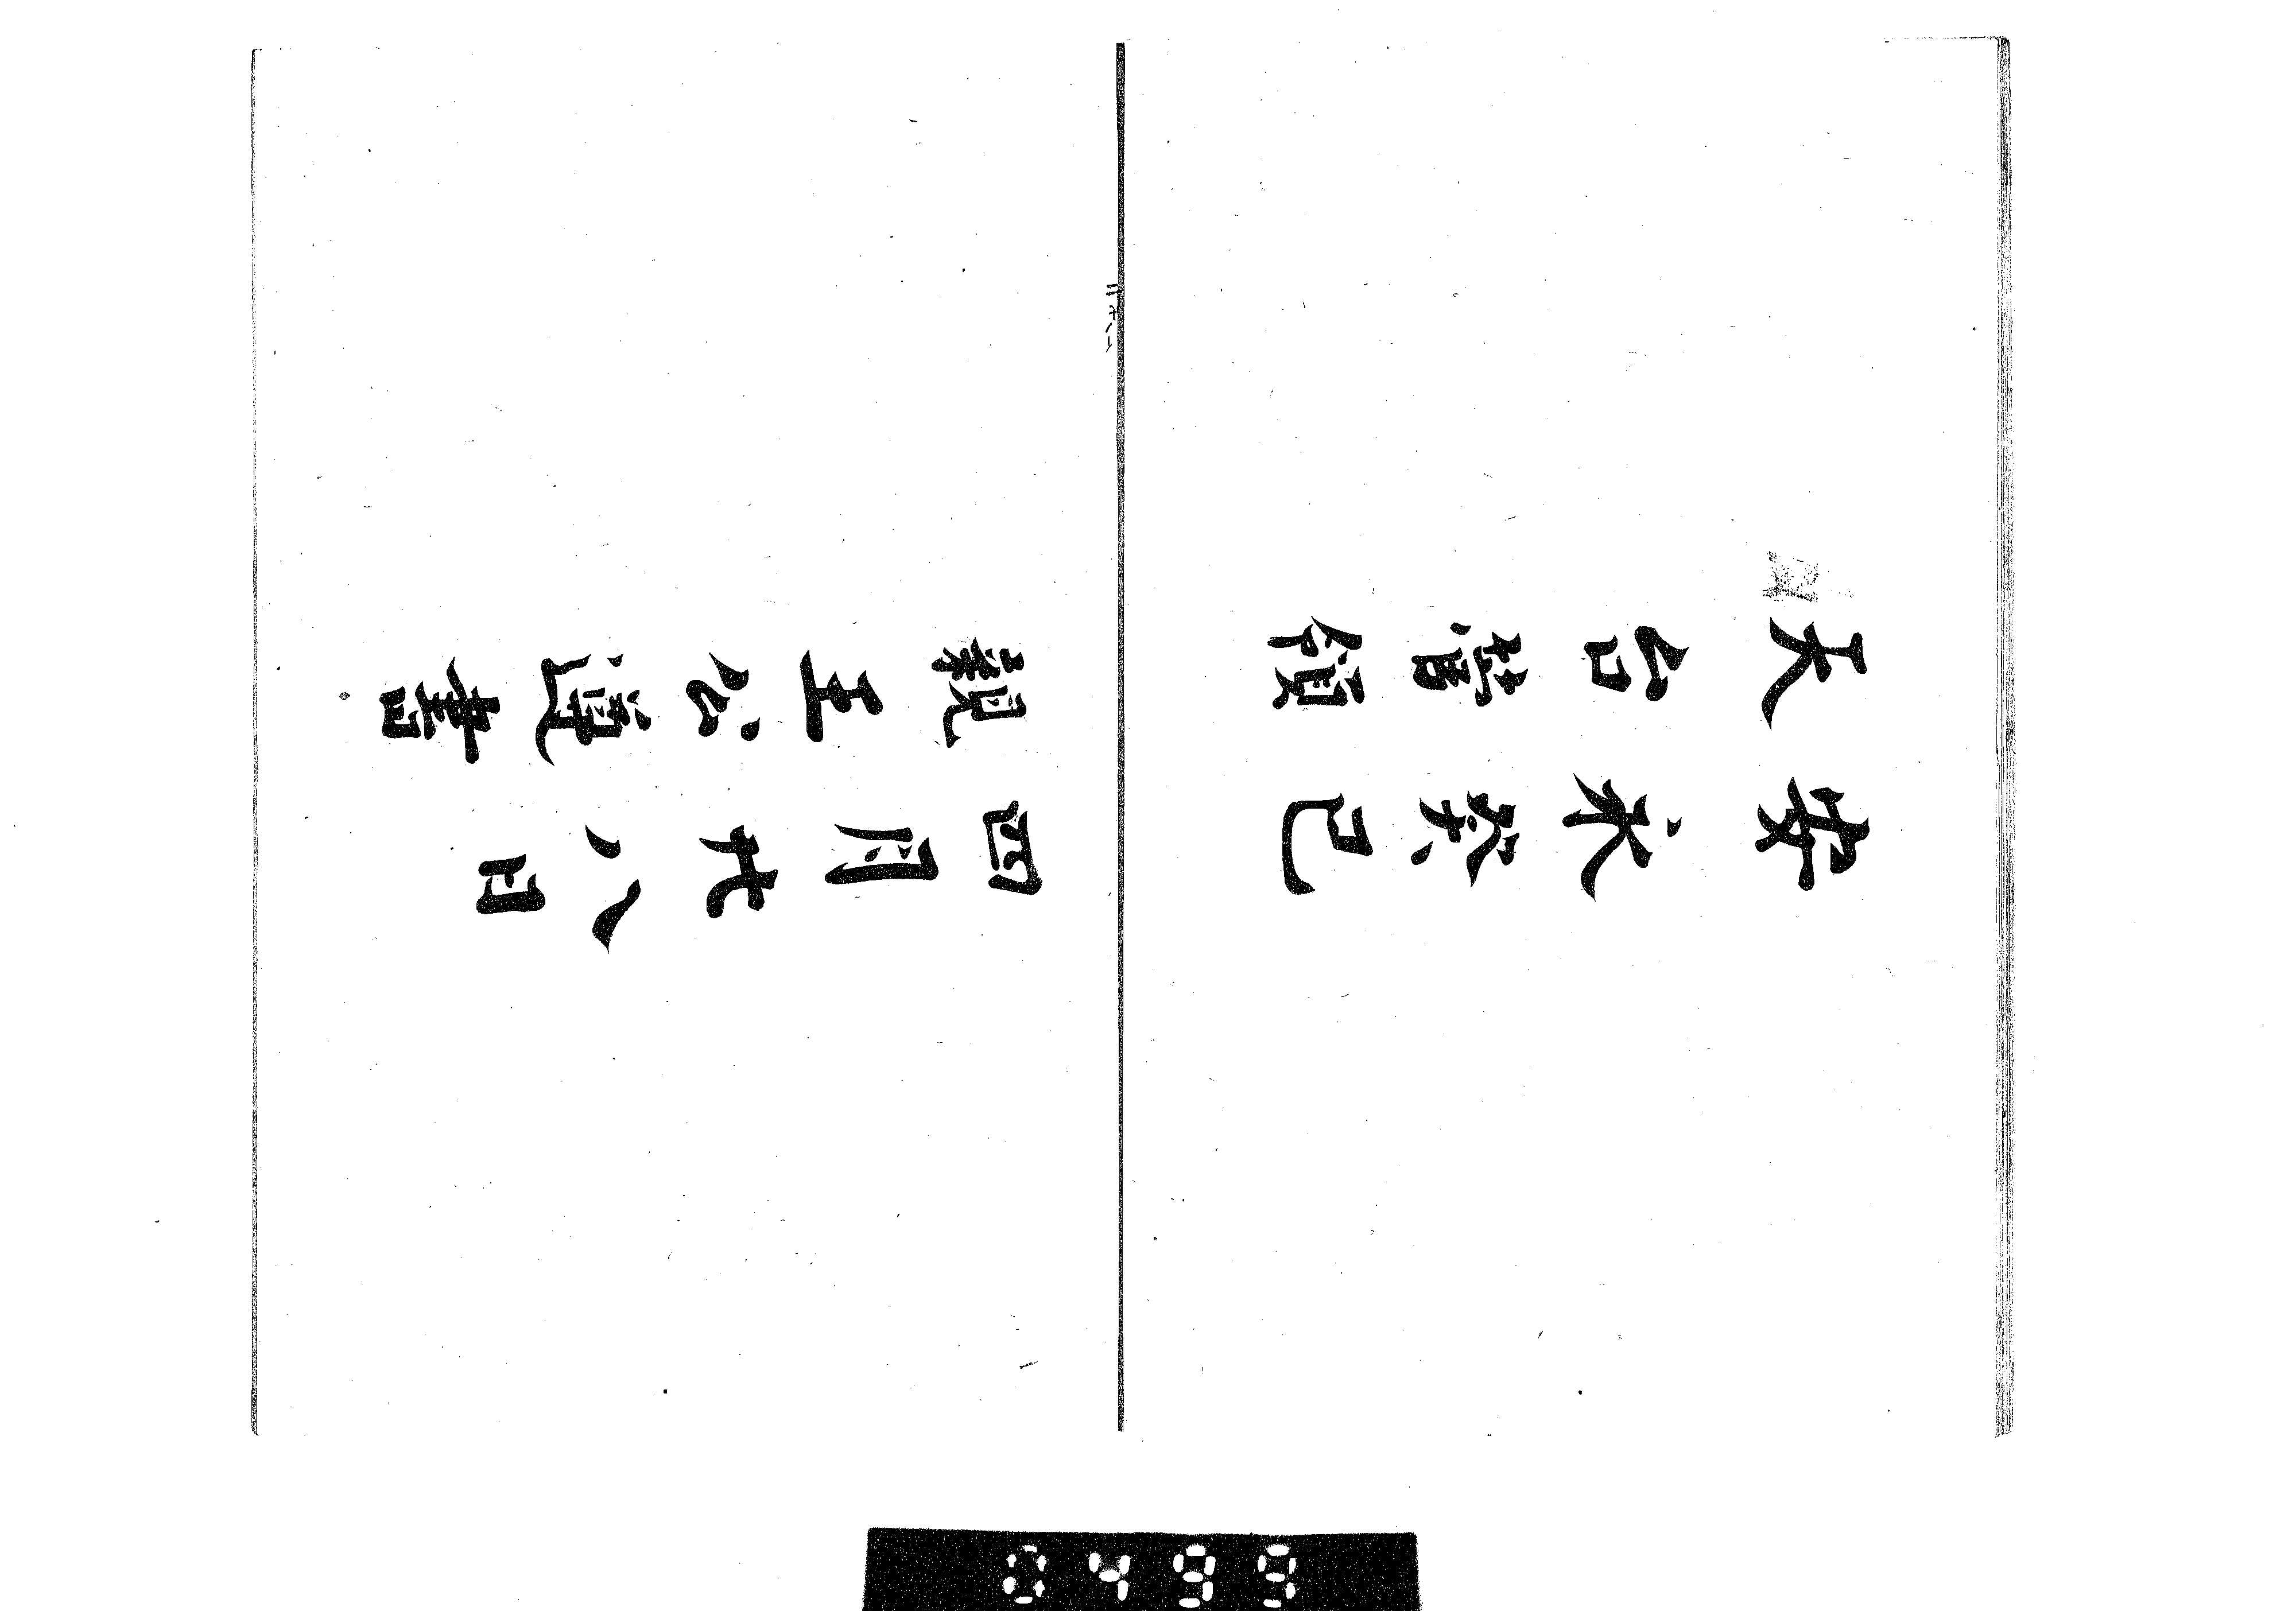 安永癸巳四月廿八日
天台舊領親王公遵書
0499